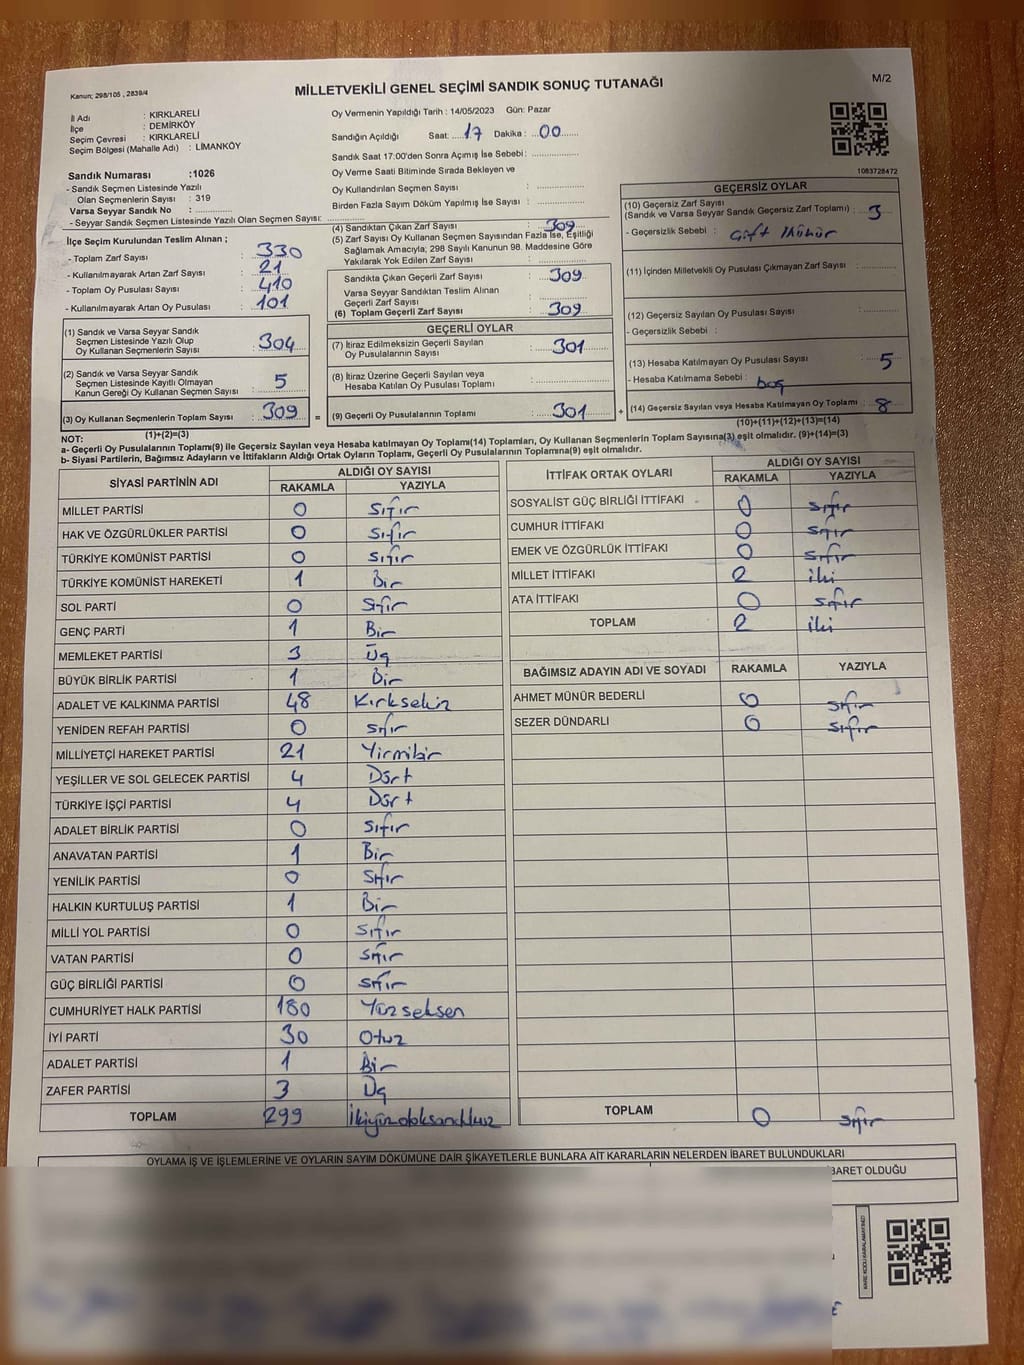 Kanun; 298/105 , 2839/4
MİLLETVEKİLİ GENEL SEÇİMİ SANDIK SONUÇ TUTANAĞI
M/2
İl Adı : KIRKLARELİ
İlçe : DEMİRKÖY
Seçim Çevresi : KIRKLARELİ
Seçim Bölgesi (Mahalle Adı) : LİMANKÖY
Sandık Numarası :1026
- Sandık Seçmen Listesinde Yazılı
Olan Seçmenlerin Sayısı : 319
Varsa Seyyar Sandık No :
- Seyyar Sandık Seçmen Listesinde Yazılı Olan Seçmen Sayısı:
Oy Vermenin Yapıldığı Tarih : 14/05/2023 Gün: Pazar
Sandığın Açıldığı Saat: 17 Dakika : 00
Sandık Saat 17:00'den Sonra Açımış İse Sebebi :
Oy Verme Saati Bitiminde Sırada Bekleyen ve
Oy Kullandırılan Seçmen Sayısı :
Birden Fazla Sayım Döküm Yapılmış İse Sayısı :
1083728472
İlçe Seçim Kurulundan Teslim Alınan ;
- Toplam Zarf Sayısı : 330
- Kullanılmayarak Artan Zarf Sayısı : 21
- Toplam Oy Pusulası Sayısı : 410
- Kullanılmayarak Artan Oy Pusulası : 101
(1) Sandık ve Varsa Seyyar Sandık
Seçmen Listesinde Yazılı Olup
Oy Kullanan Seçmenlerin Sayısı : 304
(2) Sandık ve Varsa Seyyar Sandık
Seçmen Listesinde Kayıtlı Olmayan
Kanun Gereği Oy Kullanan Seçmen Sayısı : 5
(3) Oy Kullanan Seçmenlerin Toplam Sayısı : 309
(1)+(2)=(3)
(4) Sandıktan Çıkan Zarf Sayısı : 309
(5) Zarf Sayısı Oy Kullanan Seçmen Sayısından Fazla İse, Eşitliği
Sağlamak Amacıyla; 298 Sayılı Kanunun 98. Maddesine Göre
Yakılarak Yok Edilen Zarf Sayısı :
Sandıkta Çıkan Geçerli Zarf Sayısı : 309
Varsa Seyyar Sandıktan Teslim Alınan
Geçerli Zarf Sayısı :
(6) Toplam Geçerli Zarf Sayısı : 309
GEÇERLİ OYLAR
(7) İtiraz Edilmeksizin Geçerli Sayılan
Oy Pusulalarının Sayısı : 301
(8) İtiraz Üzerine Geçerli Sayılan veya
Hesaba Katılan Oy Pusulası Toplamı :
= (9) Geçerli Oy Pusulalarının Toplamı : 301 +
GEÇERSİZ OYLAR
(10) Geçersiz Zarf Sayısı
(Sandık ve Varsa Seyyar Sandık Geçersiz Zarf Toplamı) : 3
- Geçersizlik Sebebi : Çift Mühür
(11) İçinden Milletvekili Oy Pusulası Çıkmayan Zarf Sayısı :
(12) Geçersiz Sayılan Oy Pusulası Sayısı :
- Geçersizlik Sebebi :
(13) Hesaba Katılmayan Oy Pusulası Sayısı : 5
- Hesaba Katılmama Sebebi : boş
(14) Geçersiz Sayılan veya Hesaba Katılmayan Oy Toplamı : 8
(10)+(11)+(12)+(13)=(14)
NOT:
a- Geçerli Oy Pusulalarının Toplamı(9) ile Geçersiz Sayılan veya Hesaba katılmayan Oy Toplamı(14) Toplamları, Oy Kullanan Seçmenlerin Toplam Sayısına(3) eşit olmalıdır. (9)+(14)=(3)
b- Siyasi Partilerin, Bağımsız Adayların ve İttifakların Aldığı Ortak Oyların Toplamı, Geçerli Oy Pusulalarının Toplamına(9) eşit olmalıdır.
SİYASİ PARTİNİN ADI ALDIĞI OY SAYISI
RAKAMLA YAZIYLA
MİLLET PARTİSİ 0 Sıfır
HAK VE ÖZGÜRLÜKLER PARTİSİ 0 Sıfır
TÜRKİYE KOMÜNİST PARTİSİ 0 Sıfır
TÜRKİYE KOMÜNİST HAREKETİ 1 Bir
SOL PARTİ 0 Sıfır
GENÇ PARTİ 1 Bir
MEMLEKET PARTİSİ 3 Üç
BÜYÜK BİRLİK PARTİSİ 1 Bir
ADALET VE KALKINMA PARTİSİ 48 Kırksekiz
YENİDEN REFAH PARTİSİ 0 Sıfır
MİLLİYETÇİ HAREKET PARTİSİ 21 Yirmibir
YEŞİLLER VE SOL GELECEK PARTİSİ 4 Dört
TÜRKİYE İŞÇİ PARTİSİ 4 Dört
ADALET BİRLİK PARTİSİ 0 Sıfır
ANAVATAN PARTİSİ 1 Bir
YENİLİK PARTİSİ 0 Sıfır
HALKIN KURTULUŞ PARTİSİ 1 Bir
MİLLİ YOL PARTİSİ 0 Sıfır
VATAN PARTİSİ 0 Sıfır
GÜÇ BİRLİĞİ PARTİSİ 0 Sıfır
CUMHURİYET HALK PARTİSİ 180 Yüzseksen
İYİ PARTİ 30 Otuz
ADALET PARTİSİ 1 Bir
ZAFER PARTİSİ 3 Üç
TOPLAM 299 İkiyüzdoksandokuz
İTTİFAK ORTAK OYLARI ALDIĞI OY SAYISI
RAKAMLA YAZIYLA
SOSYALİST GÜÇ BİRLİĞİ İTTİFAKI 0 Sıfır
CUMHUR İTTİFAKI 0 Sıfır
EMEK VE ÖZGÜRLÜK İTTİFAKI 0 Sıfır
MİLLET İTTİFAKI 2 iki
ATA İTTİFAKI 0 Sıfır
TOPLAM 2 iki
BAĞIMSIZ ADAYIN ADI VE SOYADI RAKAMLA YAZIYLA
AHMET MÜNÜR BEDERLİ 0 Sıfır
SEZER DÜNDARLI 0 Sıfır
TOPLAM 0 Sıfır
OYLAMA İŞ VE İŞLEMLERİNE VE OYLARIN SAYIM DÖKÜMÜNE DAİR ŞİKAYETLERLE BUNLARA AİT KARARLARIN NELERDEN İBARET BULUNDUKLARI
İBARET OLDUĞU
KARE KODU KARALAMAYINIZ!